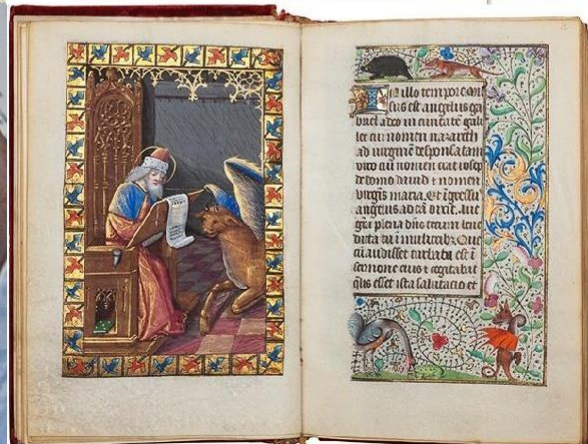 In illo tempore om
sus est angelus ga
briel a deo in ciuitatē galī
lee cui nomen nazareth
ad virginē desponsatam
viro cui nomen erat ioseph
de domo dauid et nomen
virgīs maria. Et īgressus
angelus ad eā dixit. Aue
grā plena dn̄s tecum bene
dicta tu ī mulieribꝫ Que
cū audisset turbata est ī
sermone eius et cogitabat
qͣlis esset ista salutacio et